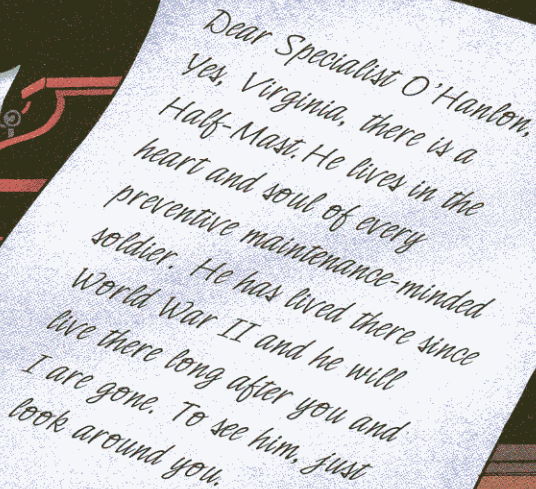 Dear Specialist O'Hanlon,
Yes, Virginia, there is a
Half-Mast. He lives in the
heart and soul of every
preventive maintenance-minded
soldier. He has lived there since
World War II and he will
live there long after you and
I are gone. To see him, just
look around you.